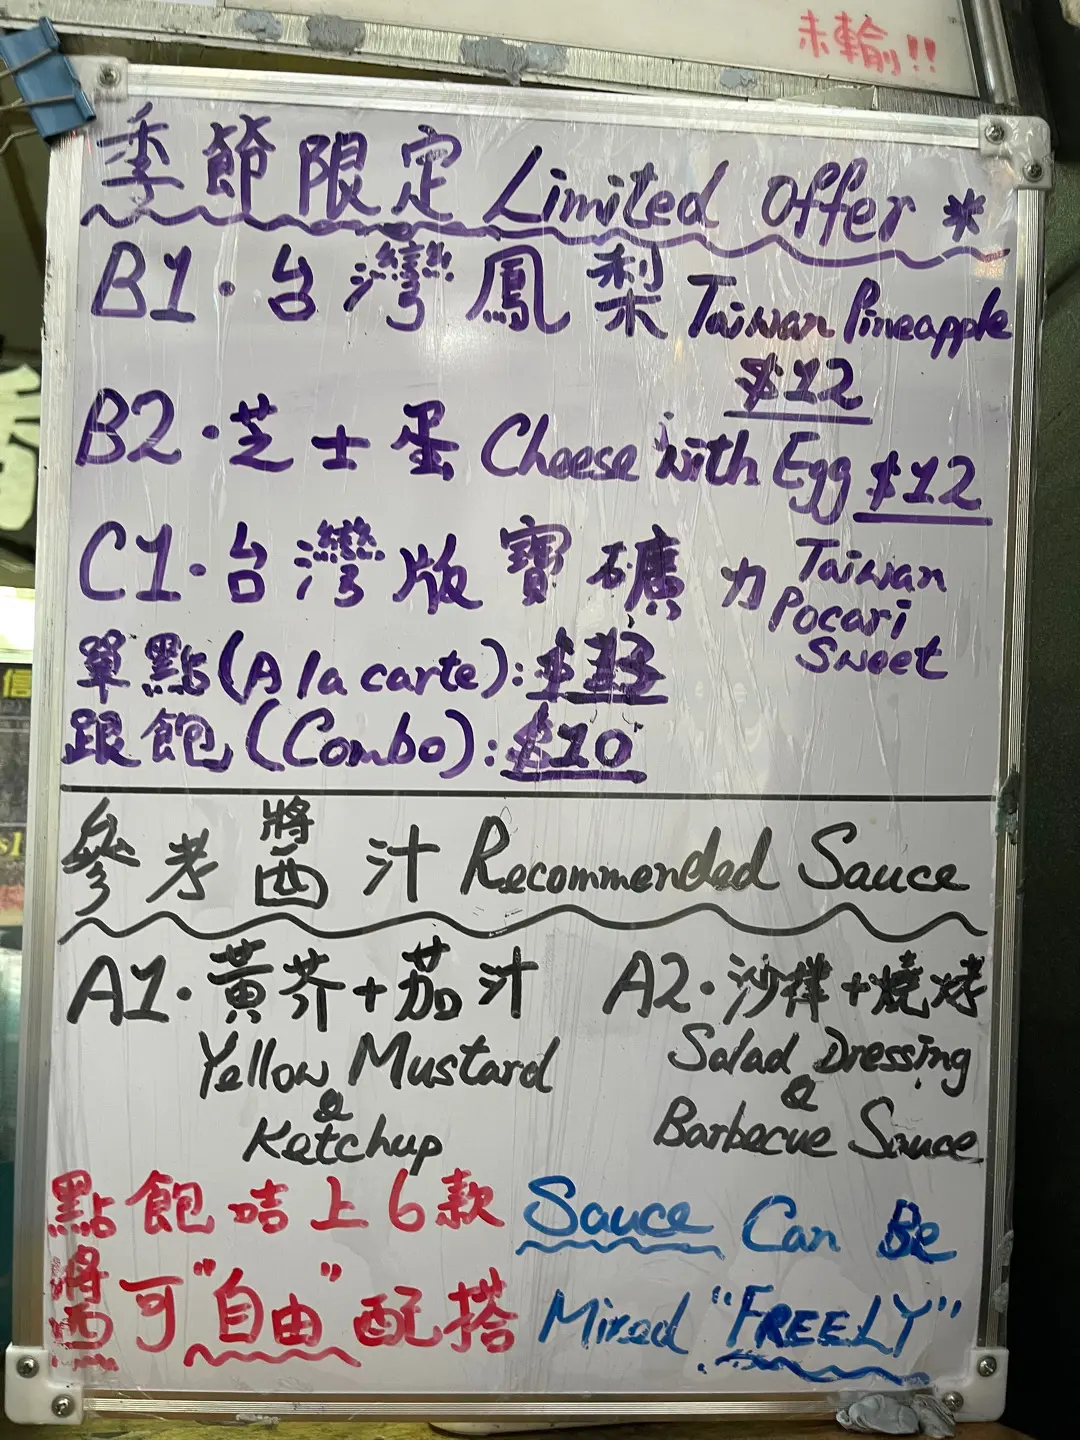 未輸!!
季節限定 Limited Offer *
B1·台灣鳳梨 Taiwan Pineapple
$12
B2·芝士蛋 Cheese with Egg $12
C1·台灣版寶礦力 Taiwan
Pocari
Sweet
單點(A la carte): $13
跟飽(Combo): $10
參考醬汁 Recommended Sauce
A1·黃芥+茄汁
Yellow Mustard
&
Ketchup
A2·沙律+燒烤
Salad Dressing
&
Barbecue Sauce
點飽咭上6款
醬可"自由"配搭
Sauce Can Be
Mixed "FREELY"